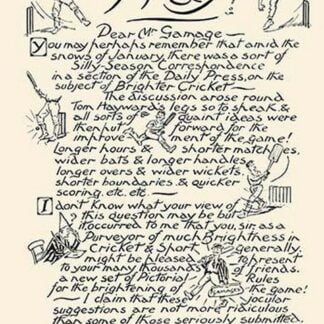 Dear Mr Gamage —
You may perhaps remember that amid the
snows of January, there was a sort of
Silly Season Correspondence
in a section of the Daily Press, on the
subject of Brighter Cricket —
The discussion arose round
Tom Hayward's legs so to speak &
all sorts of quaint ideas were
then put forward for the
improvement of the game!
Longer hours & shorter matches,
wider bats & longer handles
longer overs & wider wickets,
shorter boundaries & quicker
scoring, etc. etc. —
I don't know what your view of
this question may be but
it occurred to me that you, sir, as a
Purveyor of much Brightness in
Cricket & Shoes generally,
might be pleased to present
to your many thousands of friends,
a new set of Pictorial Rules
for the brightening of the game!
Gamages
— I claim that these jocular
suggestions are not more ridiculous
than some of those seriously submitted.